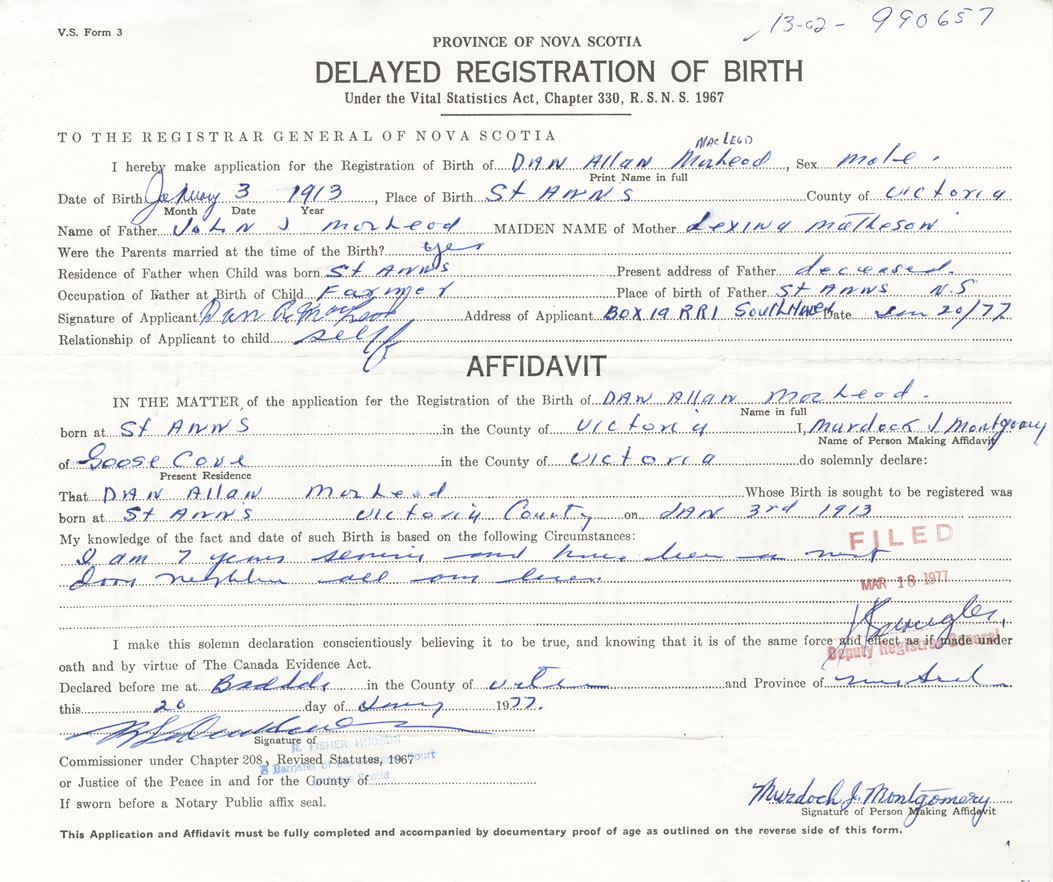 V.S. Form 3
13-02- 990657
PROVINCE OF NOVA SCOTIA
DELAYED REGISTRATION OF BIRTH
Under the Vital Statistics Act, Chapter 330, R.S.N.S. 1967
TO THE REGISTRAR GENERAL OF NOVA SCOTIA
MacLEOD
I hereby make application for the Registration of Birth of DAN Allan MacLeod, Sex male.
Print Name in full
Date of Birth January 3 1913, Place of Birth St ANNS County of Victoria
Month Date Year
Name of Father John J MacLeod MAIDEN NAME of Mother Lexina Matheson
Were the Parents married at the time of the Birth? yes
Residence of Father when Child was born St ANNS Present address of Father deceased.
Occupation of Father at Birth of Child Farmer Place of birth of Father St ANNS N.S
Signature of Applicant Dan A. MacLeod Address of Applicant BOX 19 RR1 South Haven Date Jan 20/77
Relationship of Applicant to child self
AFFIDAVIT
IN THE MATTER of the application for the Registration of the Birth of DAN Allan MacLeod.
Name in full
born at St ANNS in the County of Victoria I, Murdock J Montgomery
Name of Person Making Affidavit
of Goose Cove in the County of Victoria do solemnly declare:
Present Residence
That DAN Allan MacLeod Whose Birth is sought to be registered was
born at St ANNS Victoria County on JAN 3rd 1913
My knowledge of the fact and date of such Birth is based on the following Circumstances:
I am 7 years senior and have been a next
door neighbor all our lives.
FILED
MAR 18 1977
I make this solemn declaration conscientiously believing it to be true, and knowing that it is of the same force and effect as if made under
Deputy Registrar General
oath and by virtue of The Canada Evidence Act.
Declared before me at Baddeck in the County of Victoria and Province of Nova Scotia
this 20 day of January 1977.
Signature of
R. FISHER HUDSON
Commissioner under Chapter 208, Revised Statutes, 1967
A Barrister of the Supreme Court
or Justice of the Peace in and for the County of
of Nova Scotia
If sworn before a Notary Public affix seal.
Murdoch J. Montgomery
Signature of Person Making Affidavit
This Application and Affidavit must be fully completed and accompanied by documentary proof of age as outlined on the reverse side of this form.